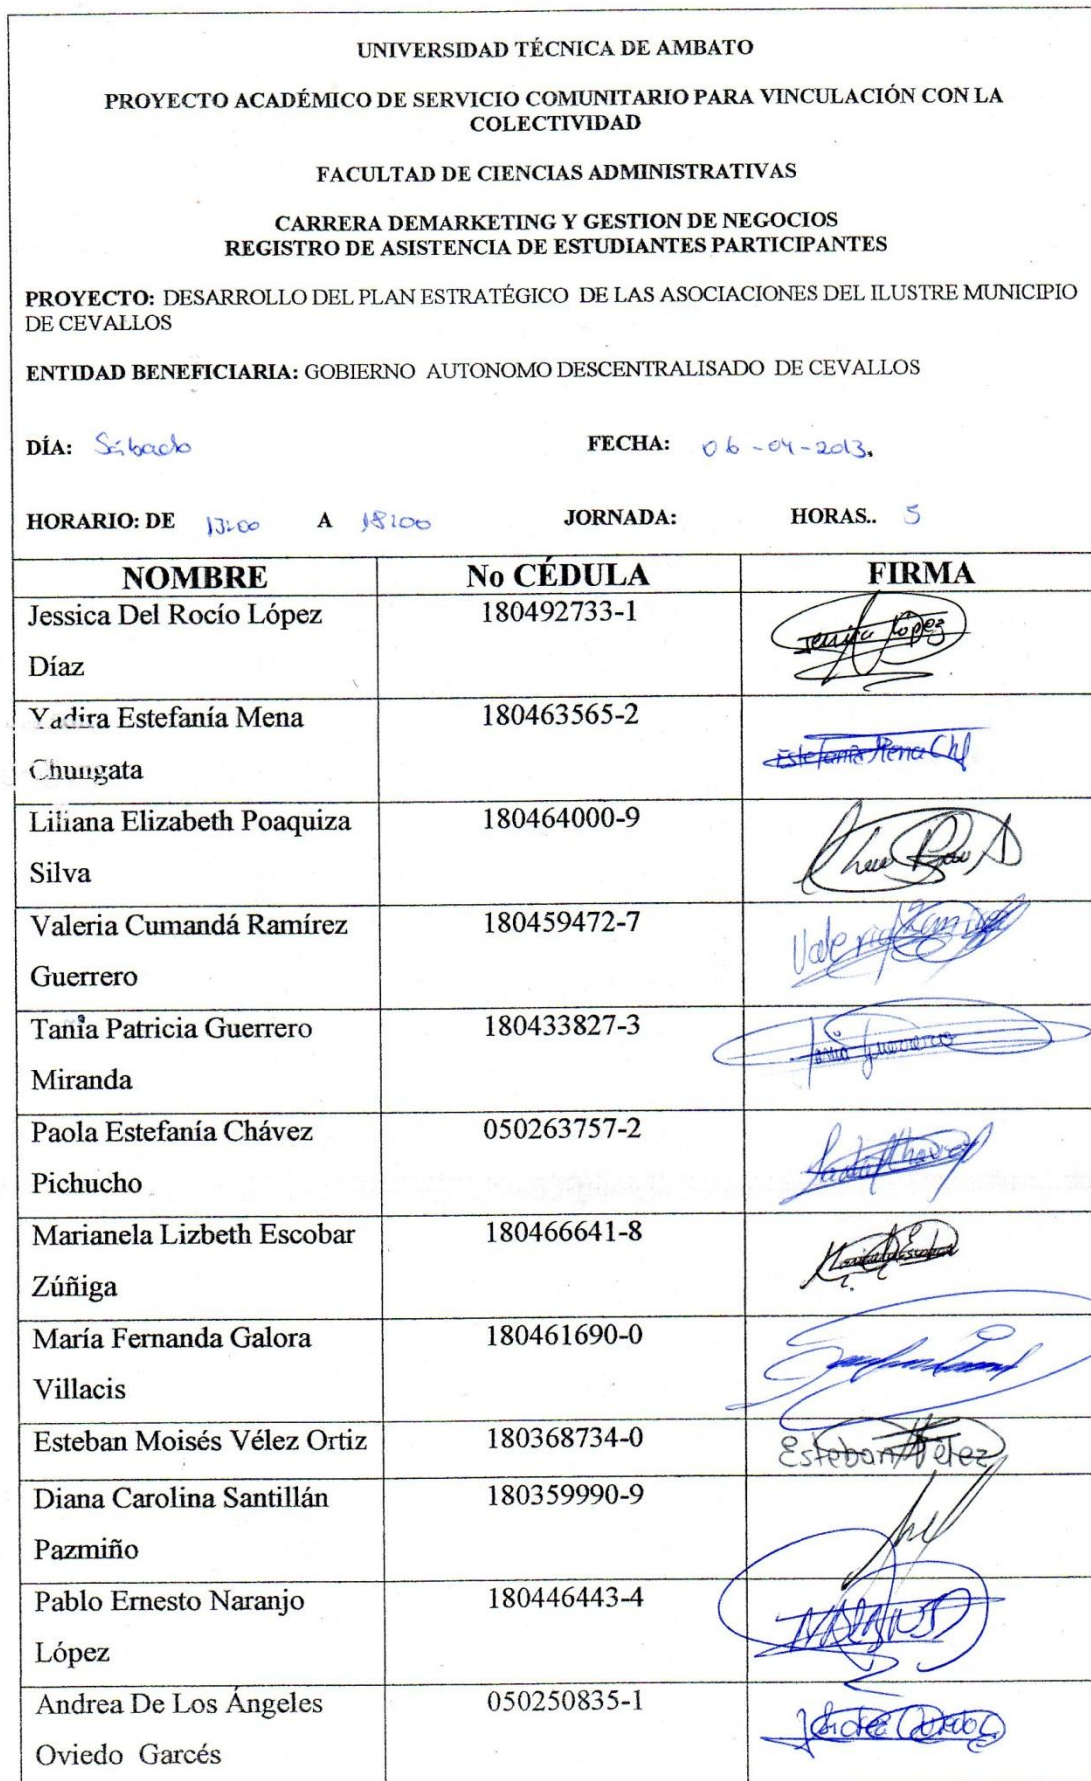 UNIVERSIDAD TÉCNICA DE AMBATO
PROYECTO ACADÉMICO DE SERVICIO COMUNITARIO PARA VINCULACIÓN CON LA
COLECTIVIDAD
FACULTAD DE CIENCIAS ADMINISTRATIVAS
CARRERA DEMARKETING Y GESTION DE NEGOCIOS
REGISTRO DE ASISTENCIA DE ESTUDIANTES PARTICIPANTES
PROYECTO: DESARROLLO DEL PLAN ESTRATÉGICO DE LAS ASOCIACIONES DEL ILUSTRE MUNICIPIO
DE CEVALLOS
ENTIDAD BENEFICIARIA: GOBIERNO AUTONOMO DESCENTRALISADO DE CEVALLOS
DÍA: Sábado FECHA: 06-04-2013.
HORARIO: DE 13:00 A 18:00 JORNADA: HORAS.. 5
NOMBRE No CÉDULA FIRMA
Jessica Del Rocío López 180492733-1 Jessica López
Díaz
Yadira Estefanía Mena 180463565-2
Chungata Estefanía Mena Ch
Liliana Elizabeth Poaquiza 180464000-9
Silva
Valeria Cumandá Ramírez 180459472-7
Guerrero Valeria Ramírez
Tania Patricia Guerrero 180433827-3 Tania Guerrero
Miranda
Paola Estefanía Chávez 050263757-2
Pichucho Paola Chavez
Marianela Lizbeth Escobar 180466641-8
Zúñiga
María Fernanda Galora 180461690-0
Villacis
Esteban Moisés Vélez Ortiz 180368734-0 Esteban Vélez
Diana Carolina Santillán 180359990-9
Pazmiño
Pablo Ernesto Naranjo 180446443-4 NARANJO
López
Andrea De Los Ángeles 050250835-1 Andrea Oviedo
Oviedo Garcés